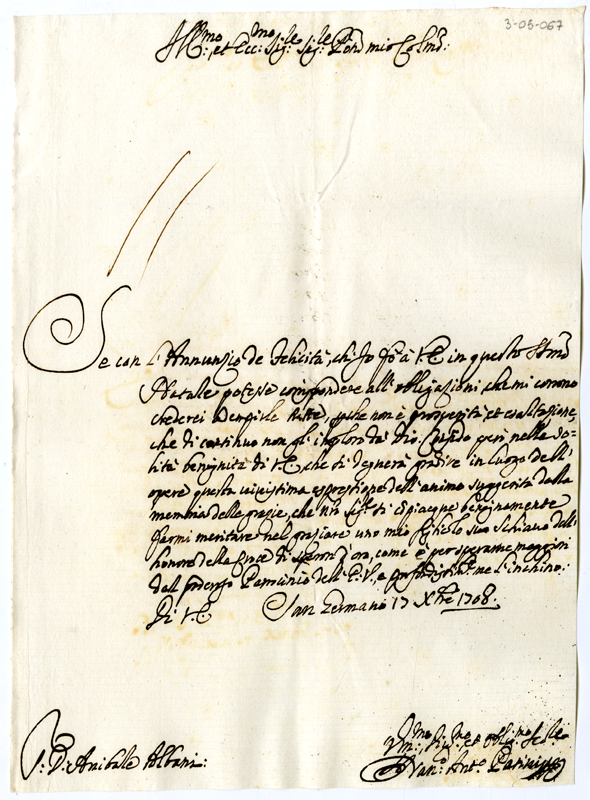 3-05-067
Ill:mo et Ecc:mo Sig:re Sig:re Pron mio Col:mo:
Se con l'Annunzio de felicità, ch'Io fò à V.E. in questo S:mo
Natale potesse corrispondere all'obligazioni, che mi corrono
crederei adempirle tutte, perche non è prosperità, et esaltazione,
che di continuo non gl'implori da Dio. Confido però nella so=
lita benignità di V.E. che si degnerà gradire in luogo dell'
opere questa vivissima espressione dell'animo suggerita dalla
memoria delle grazie, che N'ro Sig:re si compiacque benignamente
farmi meritare nel graziare uno mio figliolo suo schiavo dell'
honore della Croce di Speron d'oro, come è per sperarne maggiori
dal Patrocinio dell'E.V., e profondissim:te me l'inchino:
Di V.E. San Zermano 17 Xbre 1708.
S: D: Anibale Albani:
Hum:mo Div:mo et Obblig:mo Se:re
Fran:o Ant:o